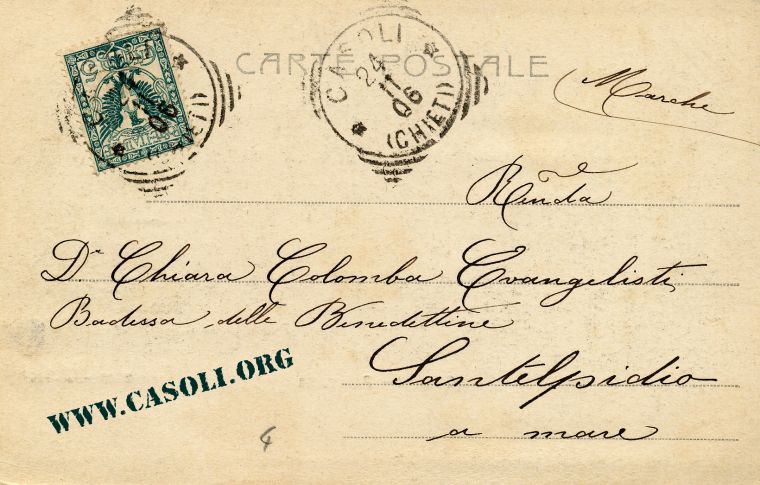 CARTE POSTALE
CASOLI
24
11
06
(CHIETI)
(Marche
Rev̅nda
Dª Chiara Colomba Evangelisti
Badessa delle Benedettine
Santelpidio
a mare
WWW.CASOLI.ORG
4